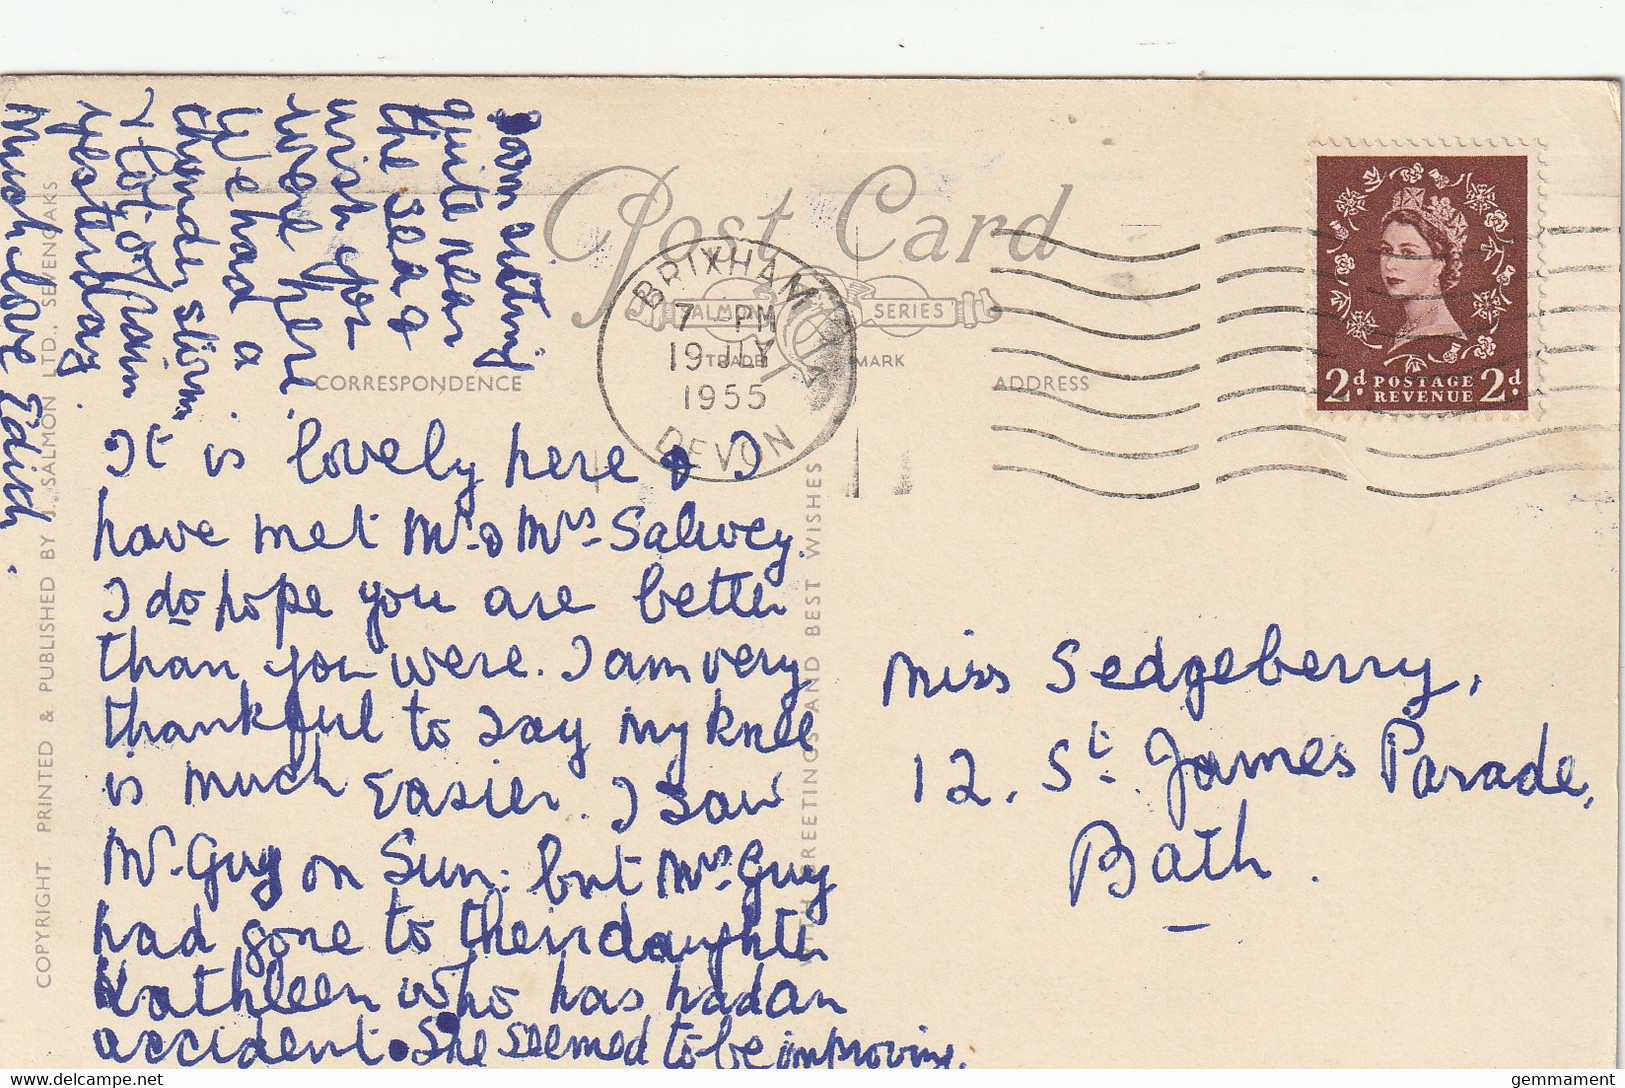 Post Card
SALMON SERIES
TRADE MARK
CORRESPONDENCE
ADDRESS
BRIXHAM
7 PM
19 JLY
1955
DEVON
2d. POSTAGE REVENUE 2d.
It is lovely here & I
have met Mr. & Mrs. Salwey.
I do hope you are better
than you were. I am very
thankful to say my knee
is much easier. I saw
Mr. Guy on Sun: but Mrs. Guy
had gone to their daughter
Kathleen who has had an
accident. She seemed to be improving.
I am sitting
quite near
the sea &
wish you
were here.
We had a
thunder storm
& lot of rain
yesterday
Much love Edith.
Miss Sedgeberry,
12. St. James Parade,
Bath.
COPYRIGHT. PRINTED & PUBLISHED BY J. SALMON LTD., SEVENOAKS
WITH GREETINGS AND BEST WISHES
gemmament